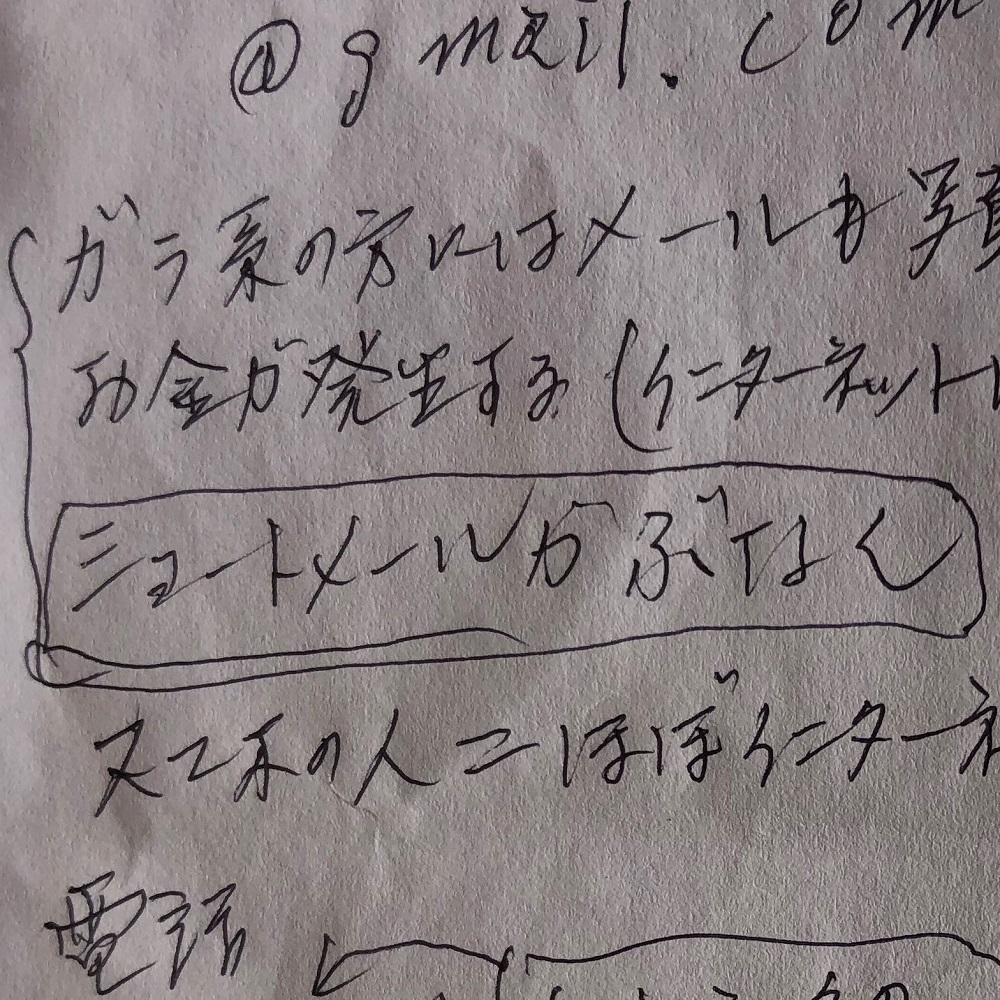 @gmail.com
ガラ系の方にはメールも写真
お金が発生する(インターネット
ショートメールがぶなん
スマホの人=ほぼインターネ
電話